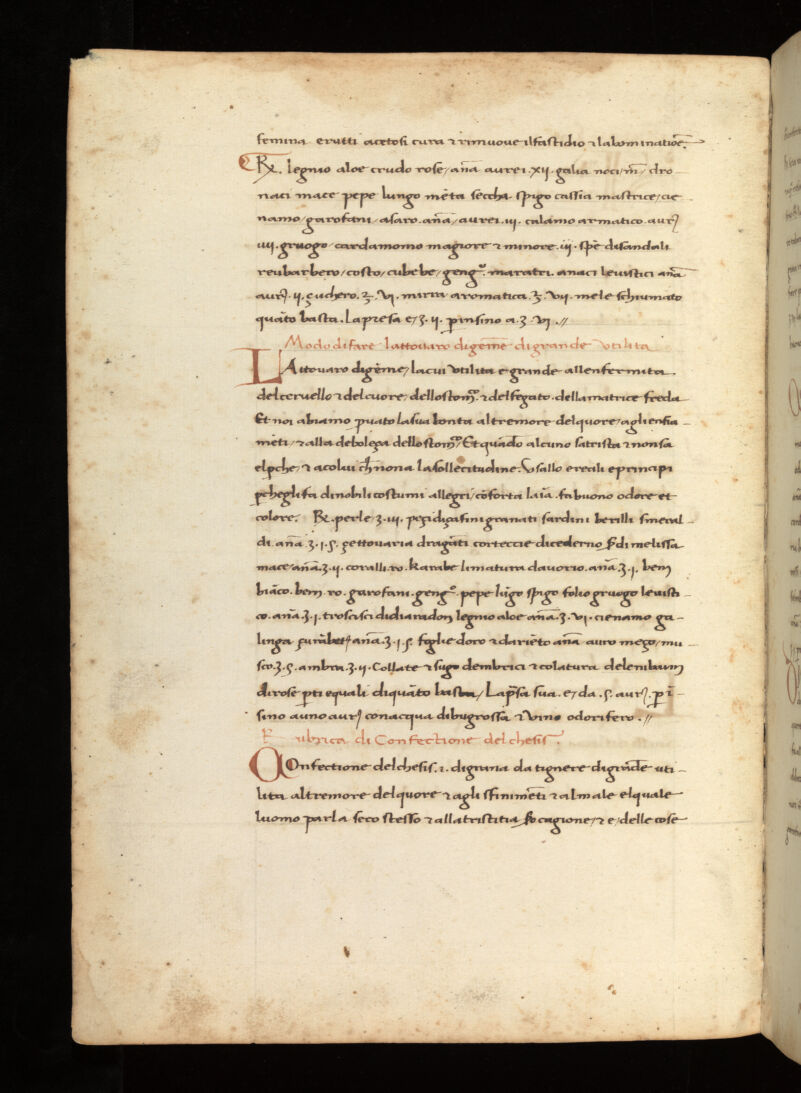 femina erutti acetosi cura ⁊ rimuove il fastidio ⁊ labominatiōe.
℞. legnio aloe crudo rose/ anā aurei .XII. galia noci/m̄/ dro
naci mace pepe lungo mēta seccha. spigo cassia mastrice/cie
namo/garofani/asaro. anā/aurei .iii. calamo armatico aurʒ
iiii. gruogo/cardamomo magiore ⁊ minore .iii. spē disandali
reubarbero/costo/cubebe/gengͦ. maratri. anaci levistici anā
aurʒ. ii. çuchero. ʒ. vi. mirra aromatica. ʒ. vii. mele schiumato
quāto basta. La presa e/ʒ. ii. p̄insino a. ʒ vi .//
Modo di fare lattovaro digēme di grande utilita
LAttovaro digēme/ lacui utilita e grande allenfermita.
del cervello ⁊ del cuore/ dello stomͦ. ⁊ del fegato. della matrice freda
Et noi abiamo p̄uato la sua bonta al tremore del quore/ agli enfia
mēti/ ⁊ alla deboleça dello stomͦ/ Et quādo alcuno satrista ⁊ non sa
el p̄che/ ⁊ a colui ch̄ nona la sollecitudine. Usallo e reali e principi
p̄che gli fa di nobili costumi allegri/ cōforta laīa. fa buono odore et
colore. ℞. perle ʒ. iii. peçi di çafini granati sardini berilli smeral
di anā. ʒ. i. ς. çettovaria dragāti corteccie di cederno s̄. di melissa
mace anā. ʒ. ii. coralli. ro. karabe limatura davorio. anā. ʒ. i. bem
biāco. bem. ro. garofani. gengͦ. pepe lūgo spigo folio gruogo levisti
co. anā. ʒ. i. troscisci didiaradon legnio aloe anā. ʒ. vi. cienamo ga
linga çurābetʒ anā. ʒ. i. ς. foglie doro ⁊ dariēto anā auro meço/mu
sco. ʒ. ς. ambra. ʒ. ii. Collate ⁊ sugo dembrici ⁊ colatura
di rose p̄ti equali di quāto basta/ La p̄sa sua. e/ da. ς. aurʒ. p̄ ī
sino a uno aurʒ con acqua di bugrossa ⁊ vino odorifero .//
Rubrica di Confectione del chesis.
COnfectione del chesis. i. di grana da tignere di grāde uti
lita al tremore del quore ⁊ agli sfinimēti ⁊ al male el quale
luomo parla seco stesso ⁊ alla tristitia s̄o cagione/ ⁊ e/ delle cose